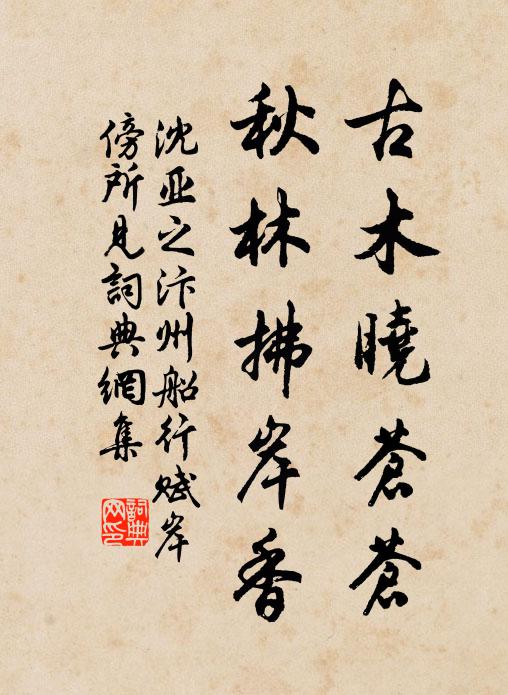 古木曉蒼蒼
秋林拂岸香
沈亚之汴州船行赋岸
傍所見詞典網集
詞典网印